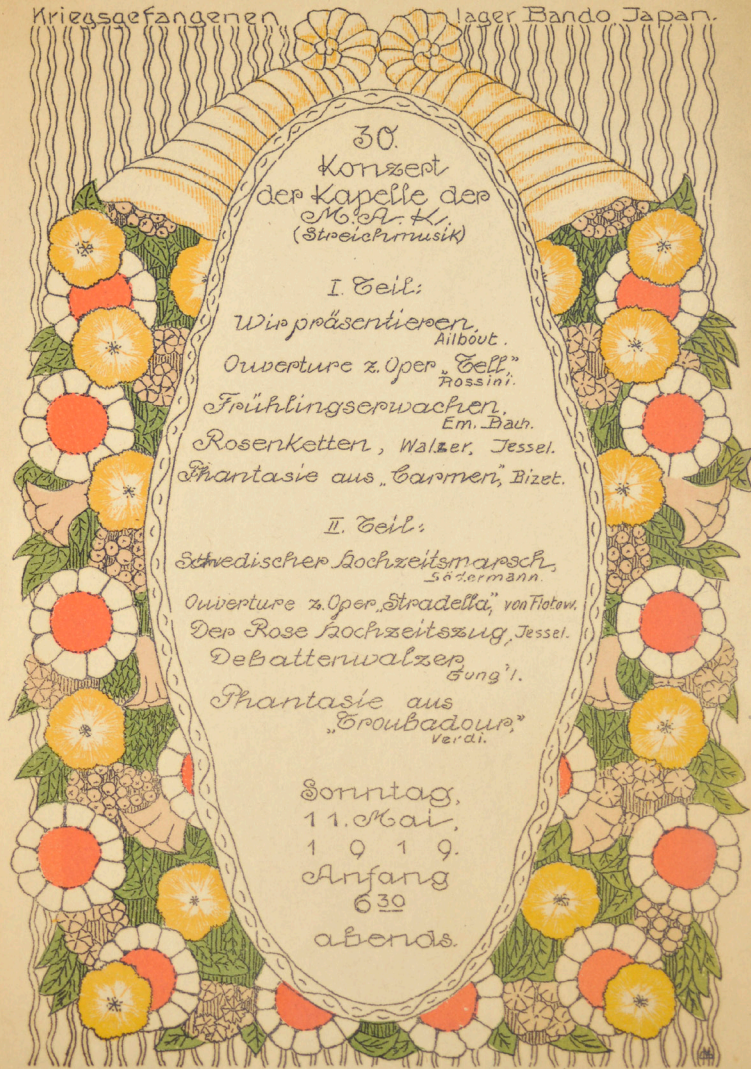 Kriegsgefangenen lager Bando, Japan.
30.
Konzert
der Kapelle der
M. A. K.
(Streichmusik)
I. Teil:
Wir präsentieren,
Ailbout.
Ouverture z. Oper „Tell,"
Rossini.
Frühlingserwachen,
Em. Bach.
Rosenketten, Walzer, Jessel.
Phantasie aus „Carmen", Bizet.
II. Teil:
Schwedischer Hochzeitsmarsch,
Södermann.
Ouverture z. Oper „Stradella", von Flotow.
Der Rose Hochzeitszug, Jessel.
Debattenwalzer,
Gung'l.
Phantasie aus
„Troubadour,"
Verdi.
Sonntag,
11. Mai,
1919.
Anfang
6 30
abends.